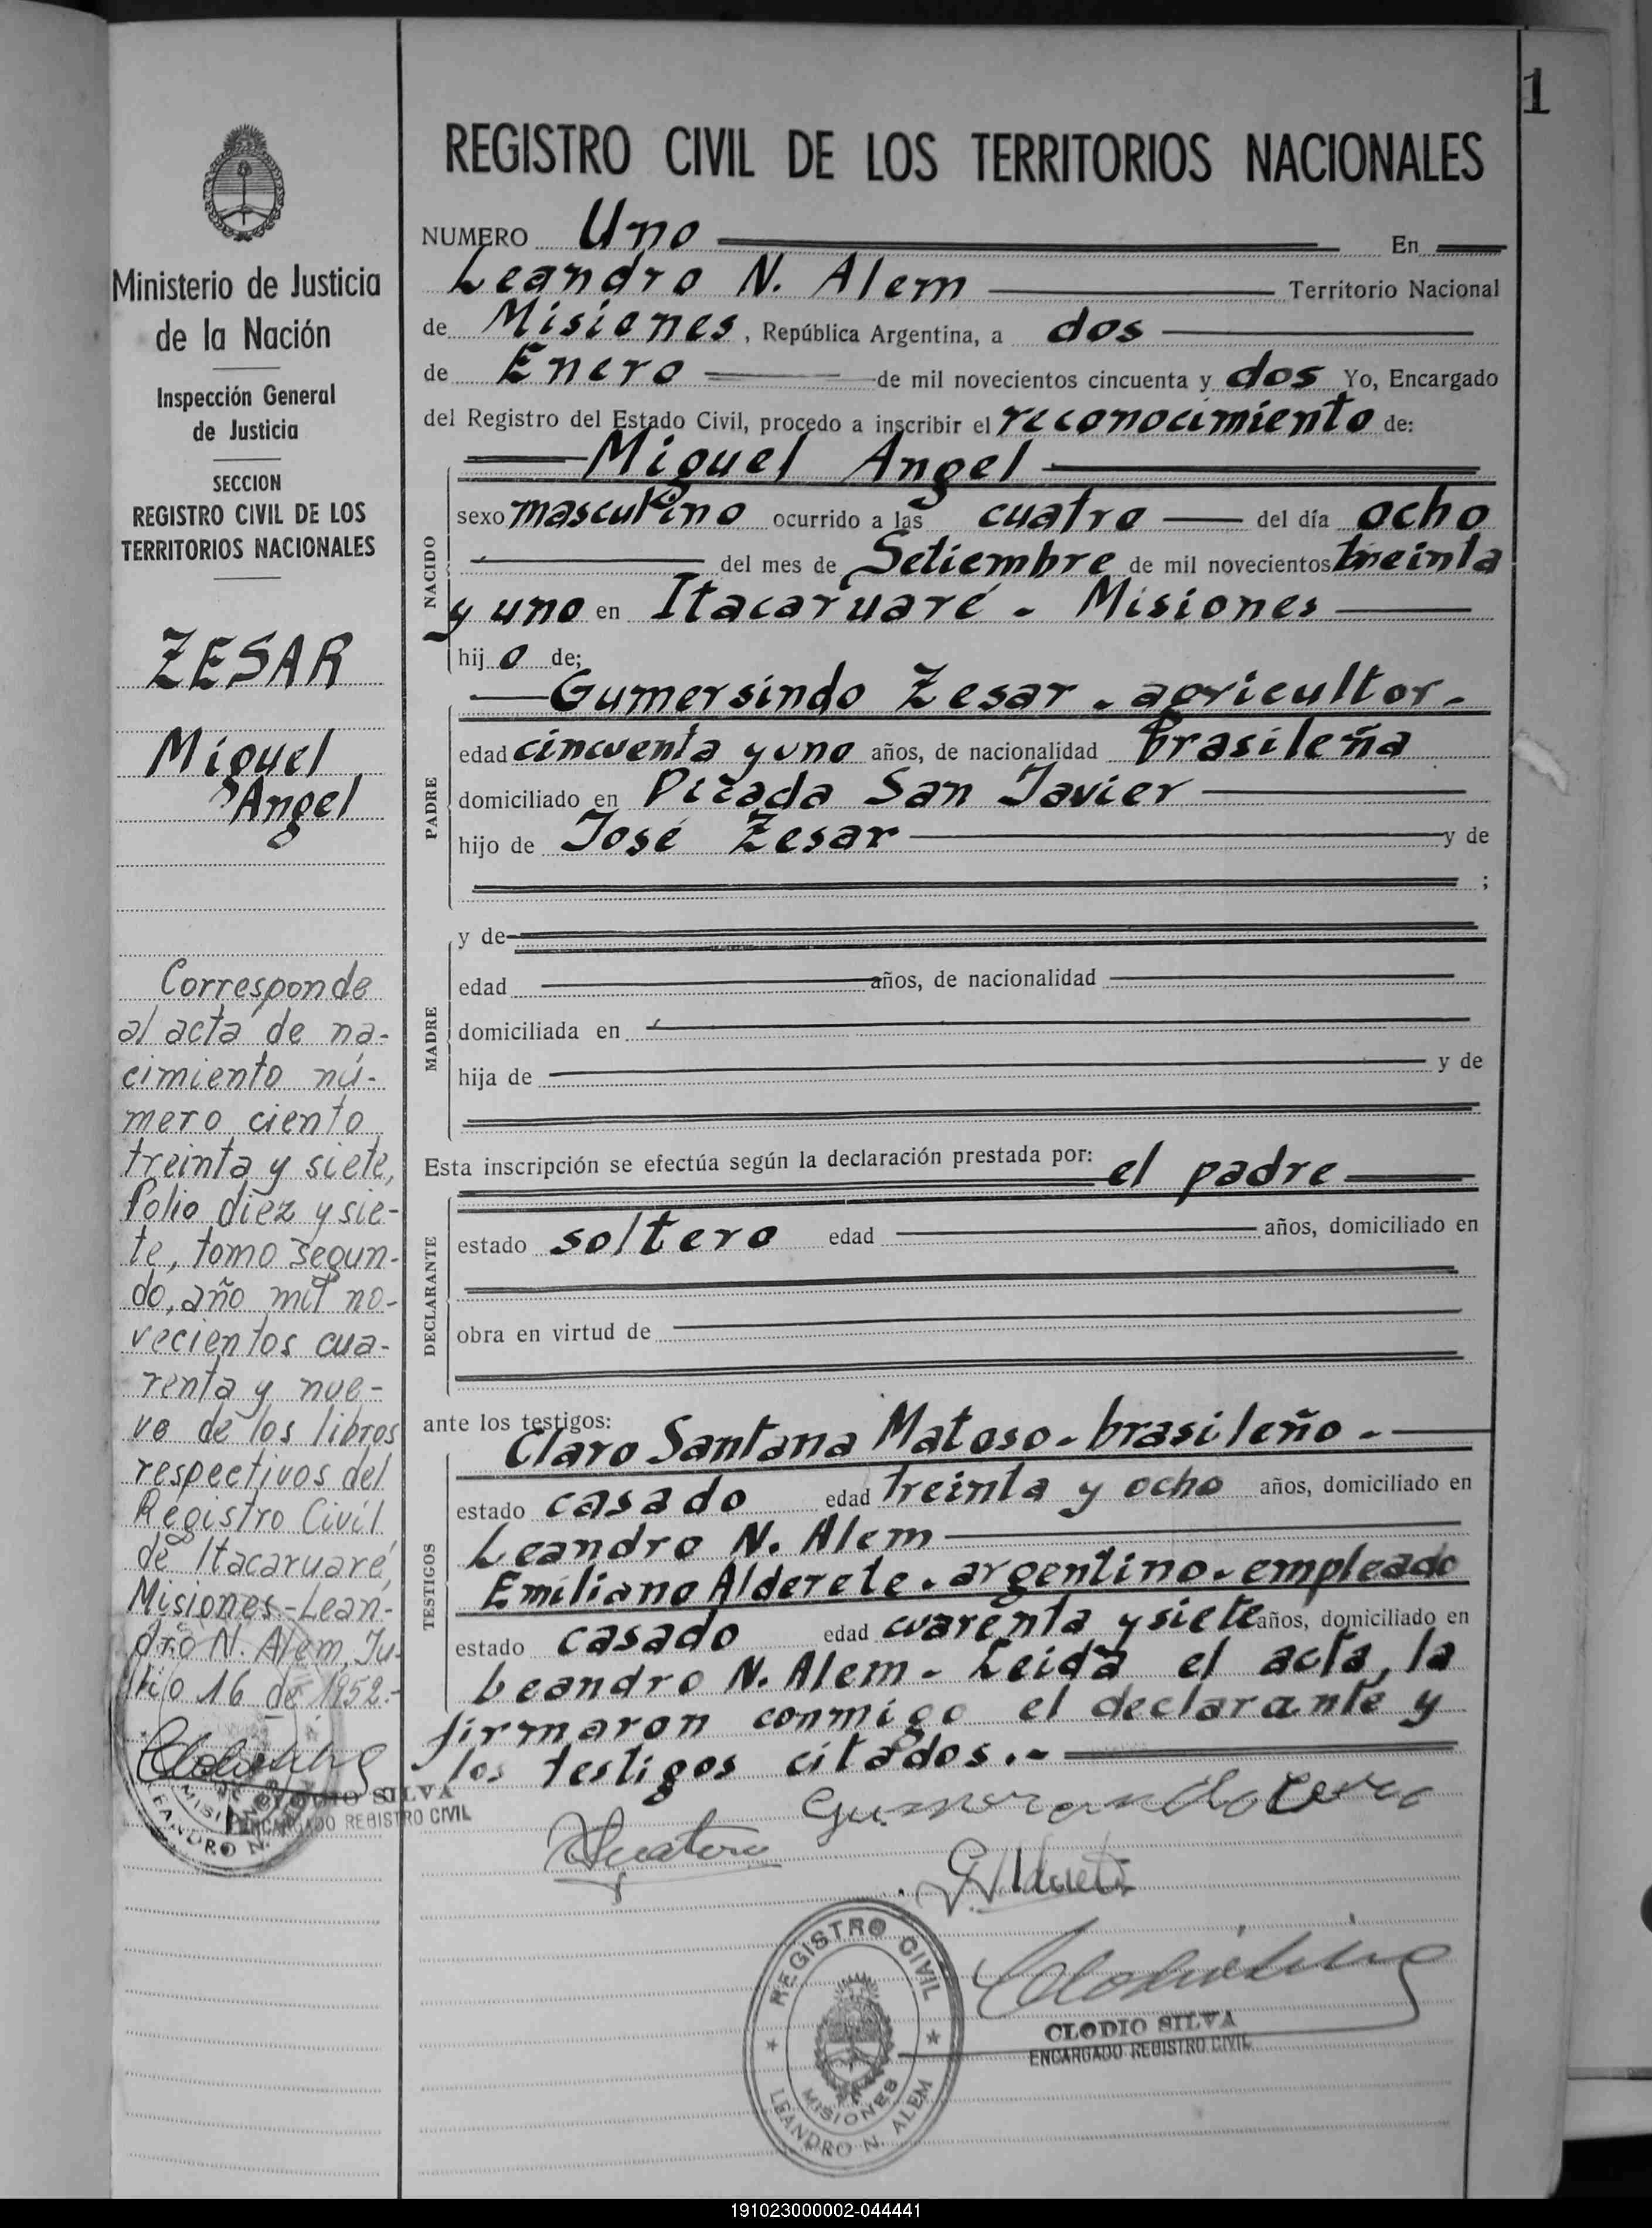 1
Ministerio de Justicia
de la Nación
Inspección General
de Justicia
SECCION
REGISTRO CIVIL DE LOS
TERRITORIOS NACIONALES
ZESAR
Miguel
Angel
Corresponde
al acta de na-
cimiento nú-
mero ciento
treinta y siete,
folio diez y sie-
te, tomo segun-
do, año mil no-
vecientos cua-
renta y nue-
ve de los libros
respectivos del
Registro Civil
de Itacaruaré,
Misiones.-Lean-
dro N. Alem, Ju-
lio 16 de 1952.-
CLODIO SILVA
ENCARGADO REGISTRO CIVIL
REGISTRO CIVIL DE LOS TERRITORIOS NACIONALES
NUMERO Uno En
Leandro N. Alem Territorio Nacional
de Misiones, República Argentina, a dos
de Enero de mil novecientos cincuenta y dos Yo, Encargado
del Registro del Estado Civil, procedo a inscribir el reconocimiento de:
Miguel Angel
NACIDO
sexo masculino ocurrido a las cuatro del día ocho
del mes de Setiembre de mil novecientos treinta
y uno en Itacaruaré - Misiones
hijo de;
Gumersindo Zesar - agricultor -
PADRE
edad cincuenta y uno años, de nacionalidad brasileña
domiciliado en Picada San Javier
hijo de José Zesar y de
;
y de
MADRE
edad años, de nacionalidad
domiciliada en
hija de y de
Esta inscripción se efectúa según la declaración prestada por: el padre
DECLARANTE
estado soltero edad años, domiciliado en
obra en virtud de
ante los testigos:
Claro Santana Matoso - brasileño -
TESTIGOS
estado casado edad treinta y ocho años, domiciliado en
Leandro N. Alem
Emiliano Alderete - argentino - empleado
estado casado edad cuarenta y siete años, domiciliado en
Leandro N. Alem - Leida el acta, la
firmaron conmigo el declarante y
los testigos citados.-
REGISTRO CIVIL
MISIONES
LEANDRO N. ALEM
CLODIO SILVA
ENCARGADO REGISTRO CIVIL
191023000002-044441